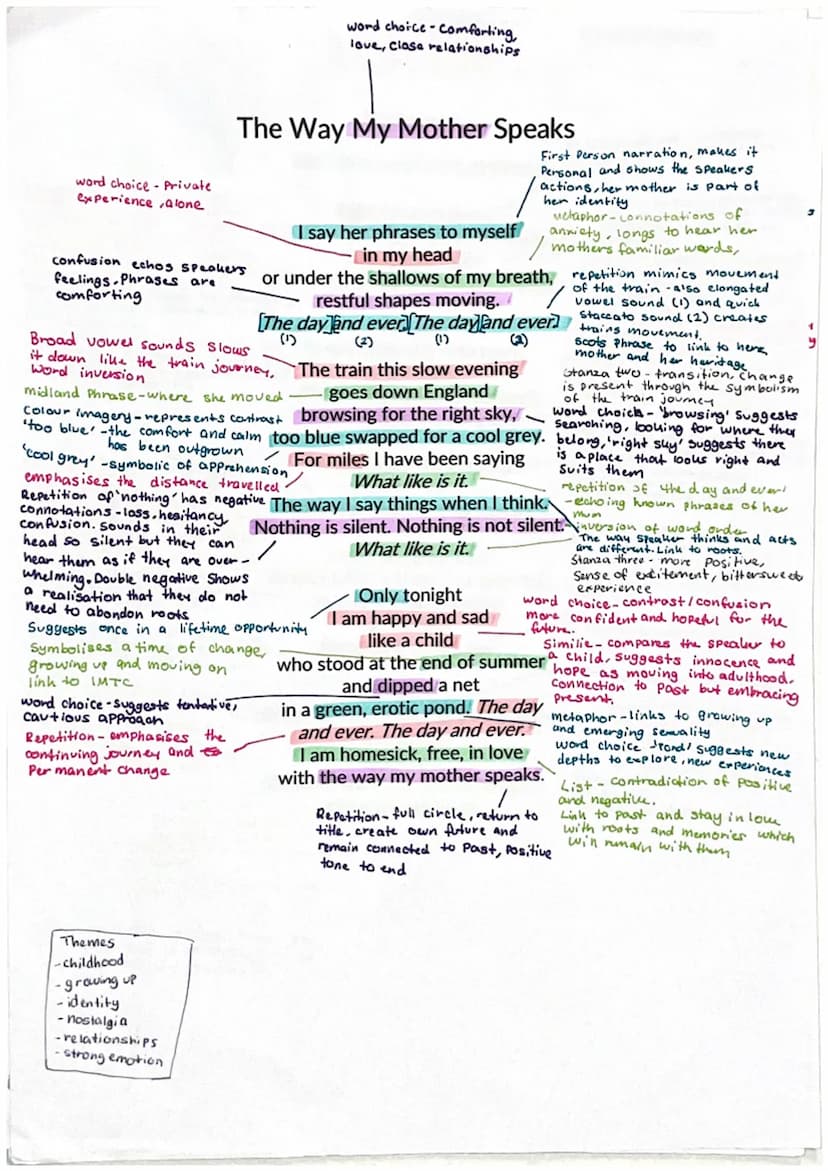 word choice - Comforting,
love, close relationships
The Way My Mother Speaks
word choice - Private
experience, alone
First Person narration, makes it
Personal and shows the speakers
actions, her mother is part of
her identity
metaphor - connotations of
anxiety, longs to hear her
mothers familiar words,
I say her phrases to myself
in my head
or under the shallows of my breath,
restful shapes moving.
[The day][and ever.][The day][and ever.]
(1) (2) (1) (2)
confusion echos speakers
feelings. Phrases are
comforting
repetition mimics movement
of the train - also elongated
vowel sound (1) and quick
Staccato sound (2) creates
trains movement.
Scots phrase to link to here,
mother and her heritage
Broad vowel sounds slows
it down like the train journey,
word inversion
midland Phrase - where she moved
Colour imagery - represents contrast
'too blue' - the comfort and calm
has been outgrown
'cool grey' - symbolic of apprehension
emphasises the distance travelled
The train this slow evening
goes down England
browsing for the right sky,
too blue swapped for a cool grey.
For miles I have been saying
What like is it.
The way I say things when I think.
Nothing is silent. Nothing is not silent.
What like is it.
Stanza two - transition, change
is present through the symbolism
of the train journey
word choice - 'browsing' suggests
searching, looking for where they
belong, 'right sky' suggests there
is a place that looks right and
suits them
repetition of 'the day and ever'
- echoing known phrases of her
mum
inversion of word order
The way speaker thinks and acts
are different. Link to roots.
Stanza three - more positive,
sense of excitement, bittersweet
experience
Repetition of 'nothing' has negative
connotations - loss, hesitancy
confusion. Sounds in their
head so silent but they can
hear them as if they are over-
whelming. Double negative shows
a realisation that they do not
need to abandon roots
Suggests once in a lifetime opportunity
Symbolises a time of change,
growing up and moving on
link to IMTC
word choice - suggests tentative,
cautious approach
Repetition - emphasises the
continuing journey and
Permanent change
Only tonight
I am happy and sad
like a child
who stood at the end of summer
and dipped a net
in a green, erotic pond. The day
and ever. The day and ever.
I am homesick, free, in love
with the way my mother speaks.
word choice - contrast/confusion
more confident and hopeful for the
future.
Similie - compares the speaker to
a child, suggests innocence and
hope as moving into adulthood.
Connection to Past but embracing
present.
metaphor - links to growing up
and emerging sexuality
word choice 'Pond' suggests new
depths to explore, new experiences
List - contradiction of positive
and negative.
Link to past and stay in love
with roots and memories which
will remain with them
Repetition - full circle, return to
title, create own future and
remain connected to Past, Positive
tone to end
Themes
- childhood
- growing up
- identity
- nostalgia
- relationships
- strong emotion